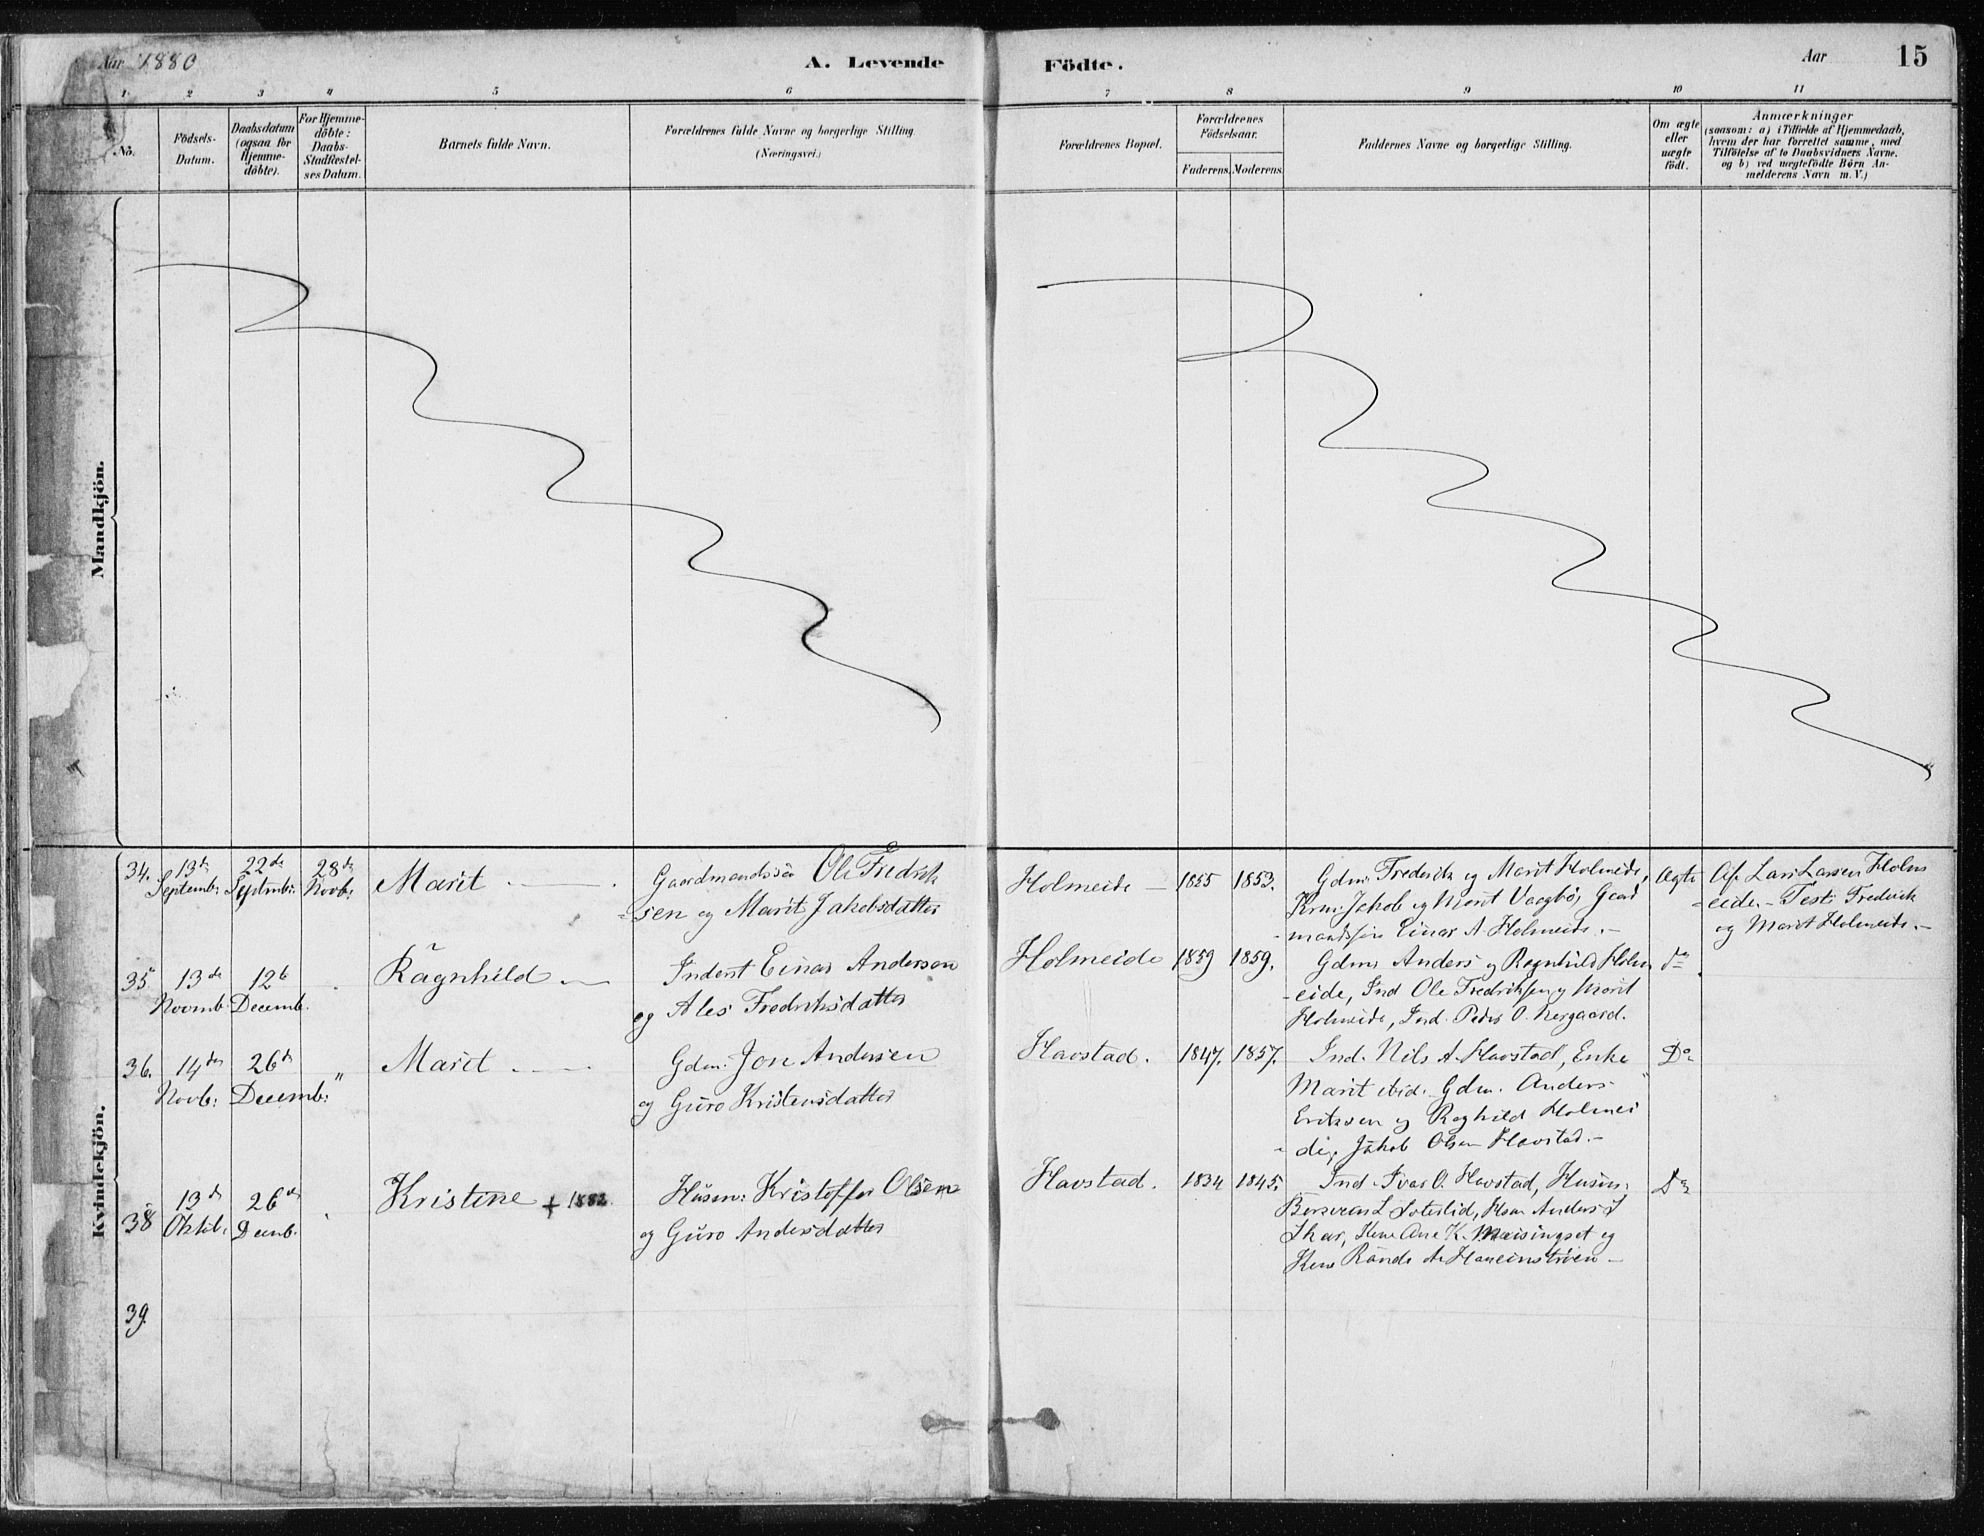 Aar 1880
A. Levende
Födte.
Aar
15
1 2 3 4 5 6 7 8 9 10 11
No.
Födsels-
Datum.
Daabsdatum
(ogsaa for
Hjemme-
döbte).
For Hjemme-
döbte:
Daabs-
Stadfæstel-
ses Datum.
Barnets fulde Navn.
Forældrenes fulde Navne og borgerlige Stilling.
(Næringsvei.)
Forældrenes Bopæl.
Forældrenes
Födselsaar.
Faderens. Moderens.
Faddernes Navne og borgerlige Stilling.
Om ægte
eller
uægte
födt.
Anmærkninger
(saasom: a) i Tilfælde af Hjemmedaab,
hvem der har forrettet samme, med
Tilföielse af to Daabsvidners Navne.
og b) ved uægtefödte Börn An-
melderens Navn m. V.)
Mandkjön.
Kvindekjön.
34.
13de
Septemb:
22de
Septmbr:
28de
Novb:
Marit
Gaardmandssön Ole Fredrik
-sen og Marit Jakobsdatter
Holmeide
1855
1853.
Gdm. Frederik og Marit Holmeide,
Krm. Jakob og Marit Vaagbö, Gaard
-mandssön Einar A Holmeide.-
Ægte
Af Lars Larsen Holm
-eide.- Test: Frederik
og Marit Holmeide.-
35
13de
Novmb:
12te
Decemb.
Ragnhild
Inderst Einar Andersen
og Ales Fredriksdatter
Holmeide
1859
1859.
Gdm. Anders og Ragnhild Holm
-eide, Ind Ole Fredriksen og Marit
Holmeide, Ind. Peder O. Nergaard.
do
36.
14de
Novb:
26de
Decemb:
"
Marit
Gdm. Jon Andersen
og Guro Kristensdatter
Havstad.
1847.
1857.
Ind. Nils A. Havstad, Enke
Marit ibid. Gdm. Anders
Eriksen og Raghild Holmei
-de, Jakob Olsen Havstad.-
Do
38
13de
Oktob.
26de
Decmb.
Kristine + 1882.
Husm: Kristoffer Olsen
og Guro Andersdatter
Havstad.
1834
1845.
Ind. Ivar O. Havstad, Husm.
L Soterlid, Anders I
Skar, Ane K. Meisingset og
Do
39.